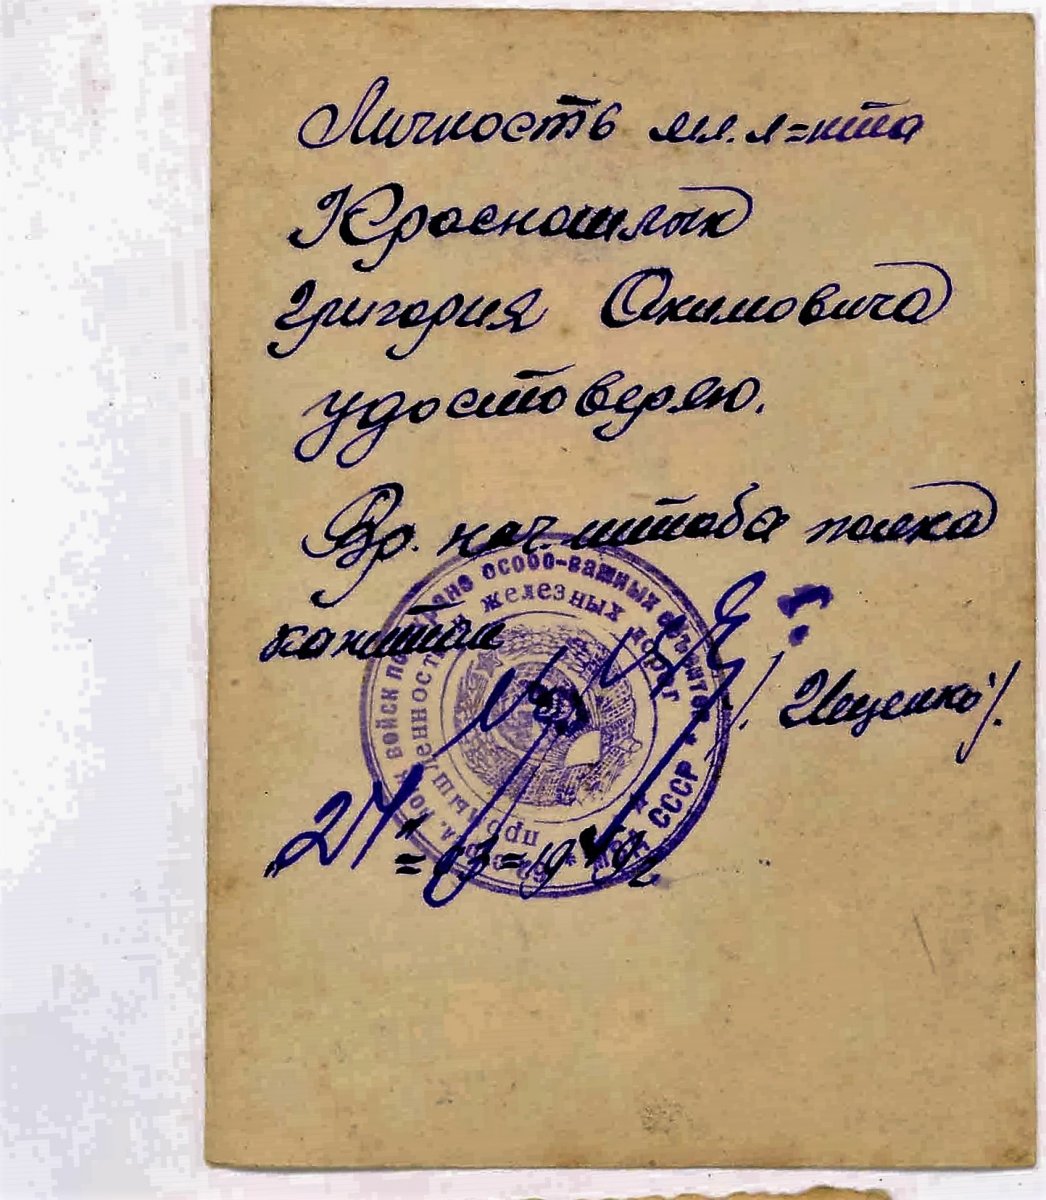 Личность мл. л=нта
Красношлык
Григория Акимовича
удостоверяю.
Вр. нач. штаба полка
капитан
/Ищенко/.
войск по охране особо-важных объектов
промышленности и железных дорог
СССР